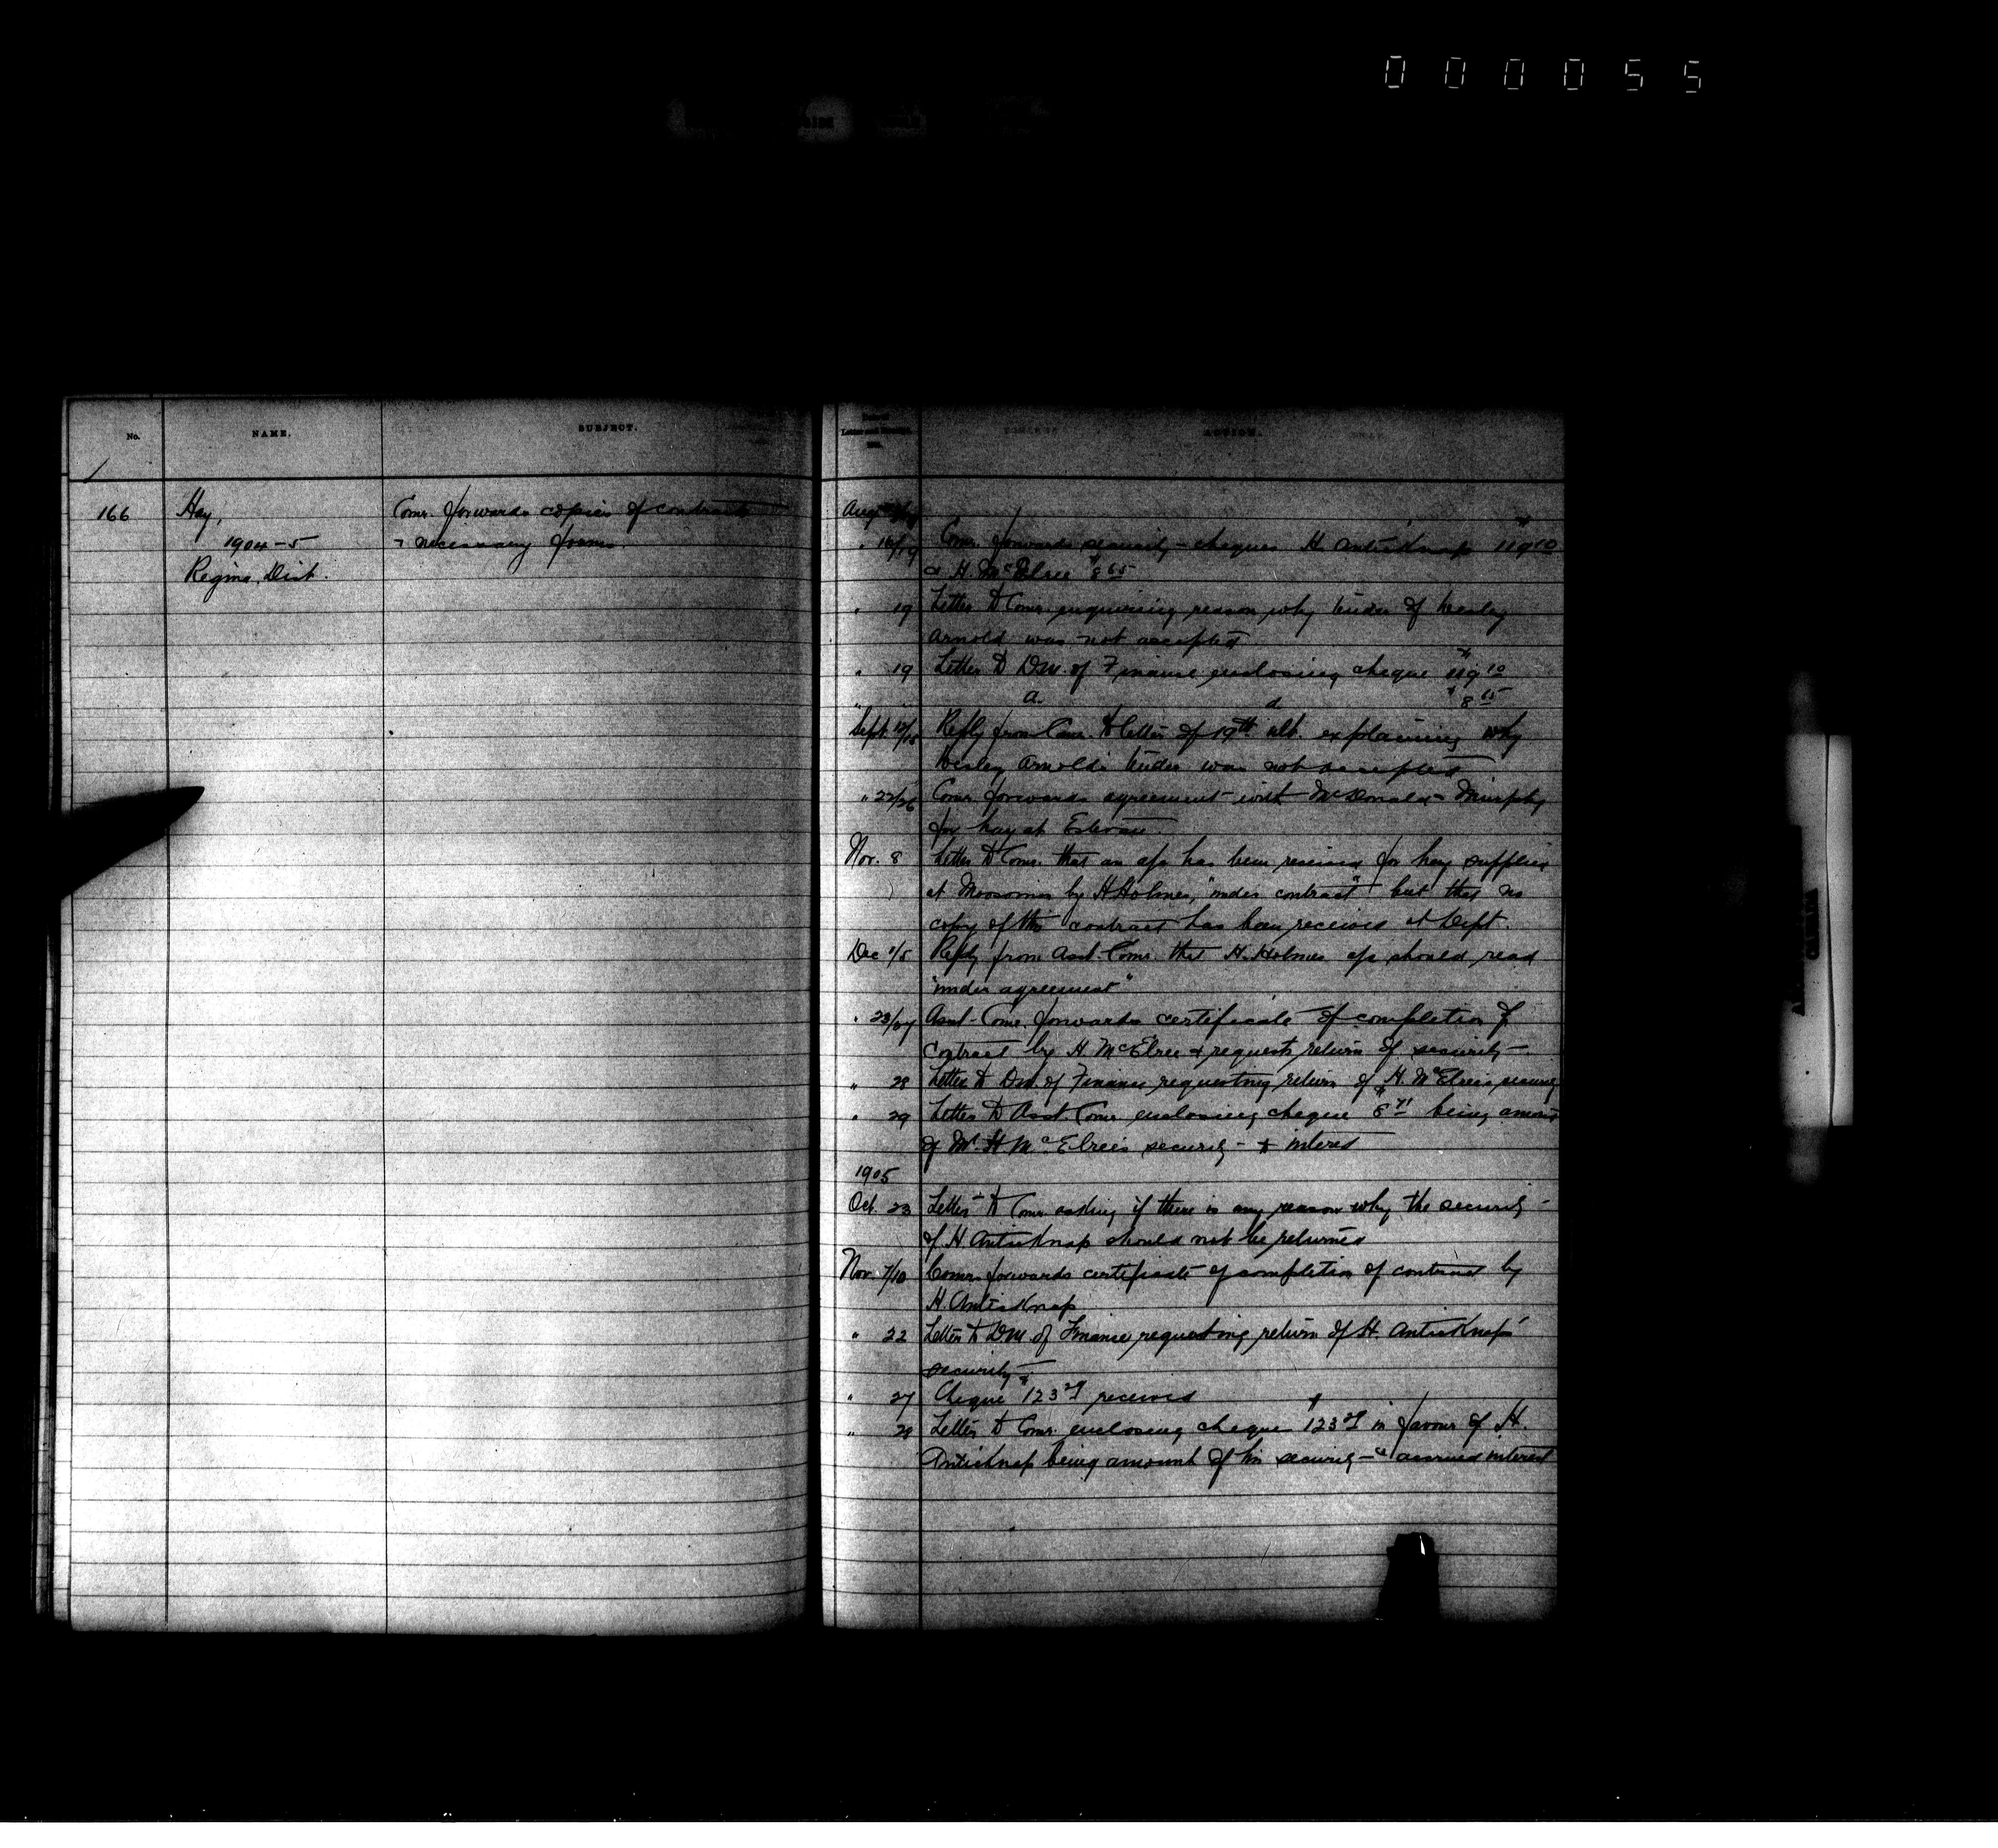 000055
No.
NAME.
SUBJECT.
ACTION.
166
Hay,
1904-5
Regina Dist.
Comr. forwards copies of contracts
& necessary forms.
Augt
" 16/19 Comr. forwards security - cheques H. Anticknap $119.10
& H. McElree $8.65
" 19 Letter to Comr. enquiring reason why tender of Wesley
Arnold was not accepted
" 19 Letter to DM. of Finance enclosing cheque $119.10
$8.65
Sept. Reply from Comr. to letter of 19th ult. explaining why
Wesley Arnold's tender was not accepted
" 22/26 Comr. forwards agreement with McDonald & Murphy
for hay at Estevan.
Nov. 8 Letter to Comr. that an a/c has been received for hay supplied
at Moosomin by H Holmes, "under contract" but that no
copy of this contract has been received at Dept.
Dec 1/5 Reply from Asst. Comr. that H. Holmes a/c should read
"under agreement"
" 23/27 Asst. Comr. forwards certificate of completion of
Contract by H. McElree & requests return of security -
" 28 Letter to DM. of Finance requesting return of H. McElree's security
" 29 Letter to Asst. Comr. enclosing cheque $8.71 being amount
of Mr. H McElree's security - & interest
1905
Oct. 23 Letter to Comr. asking if there is any reason why the security -
of H Anticknap should not be returned
Nov. 7/10 Comr. forwards certificate of completion of contract by
H. Anticknap
" 22 Letter to DM. of Finance requesting return of H. Anticknap's
security -
" 27 Cheque $123 received
" 28 Letter to Comr. enclosing cheque $123 in favour of H.
Anticknap being amount of his security - & accrued interest